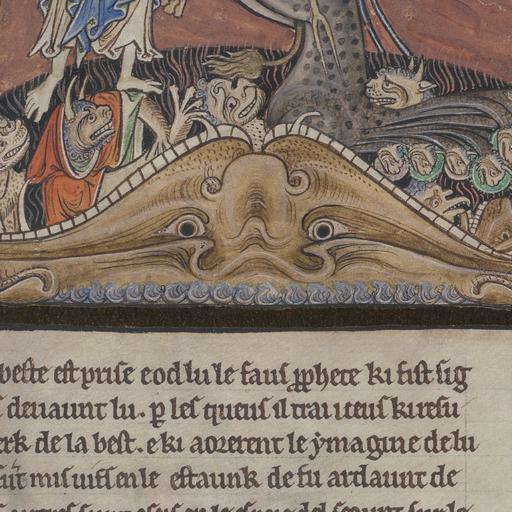 beste est prise e od lu le faus ꝓphete ki fist sig
deuaunt lu. ꝑ les queus il trai ceus ki resu
erk de la best. e ki aorerent le ymagine de lu
mis uifs en le estaunk de fu ardaunt de